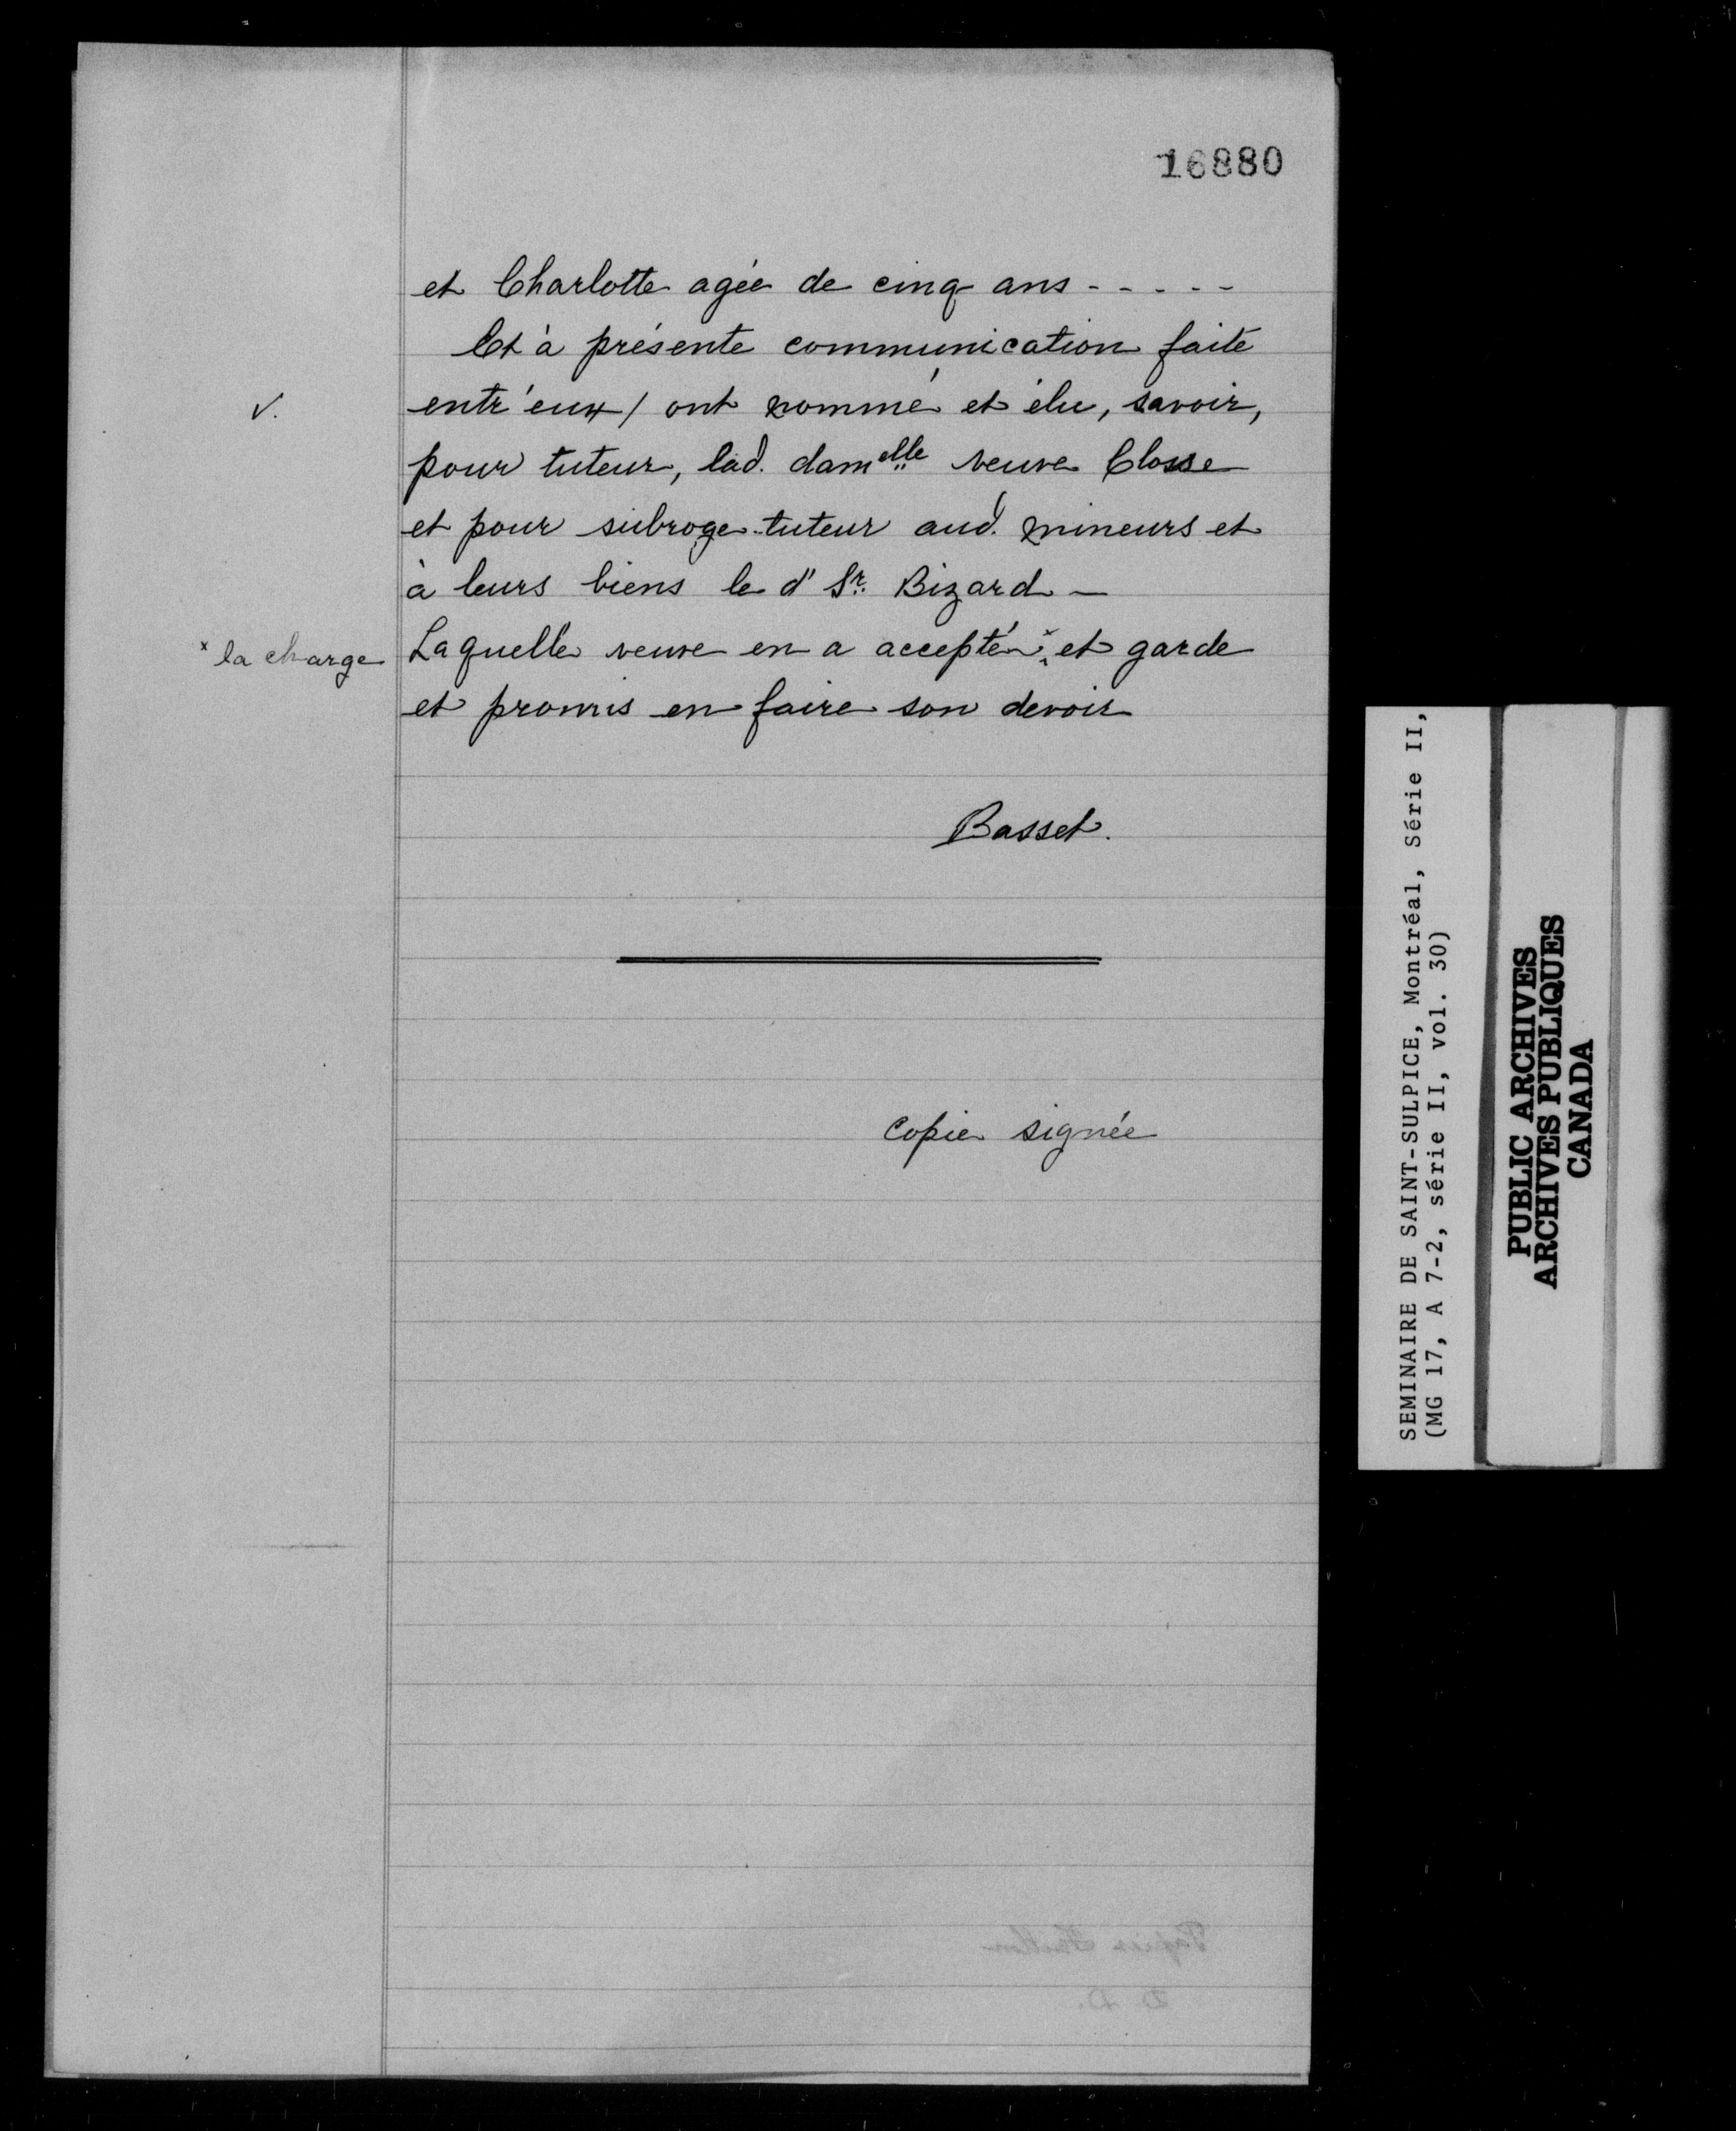 16880
et Charlotte agée de cinq ans - - - - -
Et à présente communication faite
v. entr'eux / ont nommé et élu, savoir,
pour tuteur, lad. damelle veuve Closse
et pour subroge-tuteur aud. mineurs et
à leurs biens le d' Sr. Bizard -
Laquelle veuve en a accepté x et garde
x la charge
et promis en faire son devoir
Basset.
copie signée
SEMINAIRE DE SAINT-SULPICE, Montréal, Série II,
(MG 17, A 7-2, série II, vol. 30)
PUBLIC ARCHIVES
ARCHIVES PUBLIQUES
CANADA